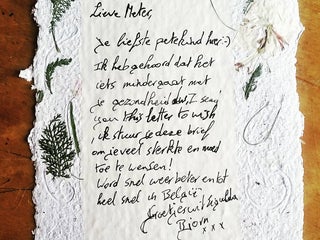 Lieve Meter,
Je liefste petekind hier :-)
Ik heb gehoord dat het
iets minder gaat met
je gezondheid dus, I send
you this letter to wish
, ik stuur je deze brief
om je veel sterkte en moed
toe te wensen!
Word snel weer beter en tot
heel snel in België
Groetjes uit
Bjorn x x x